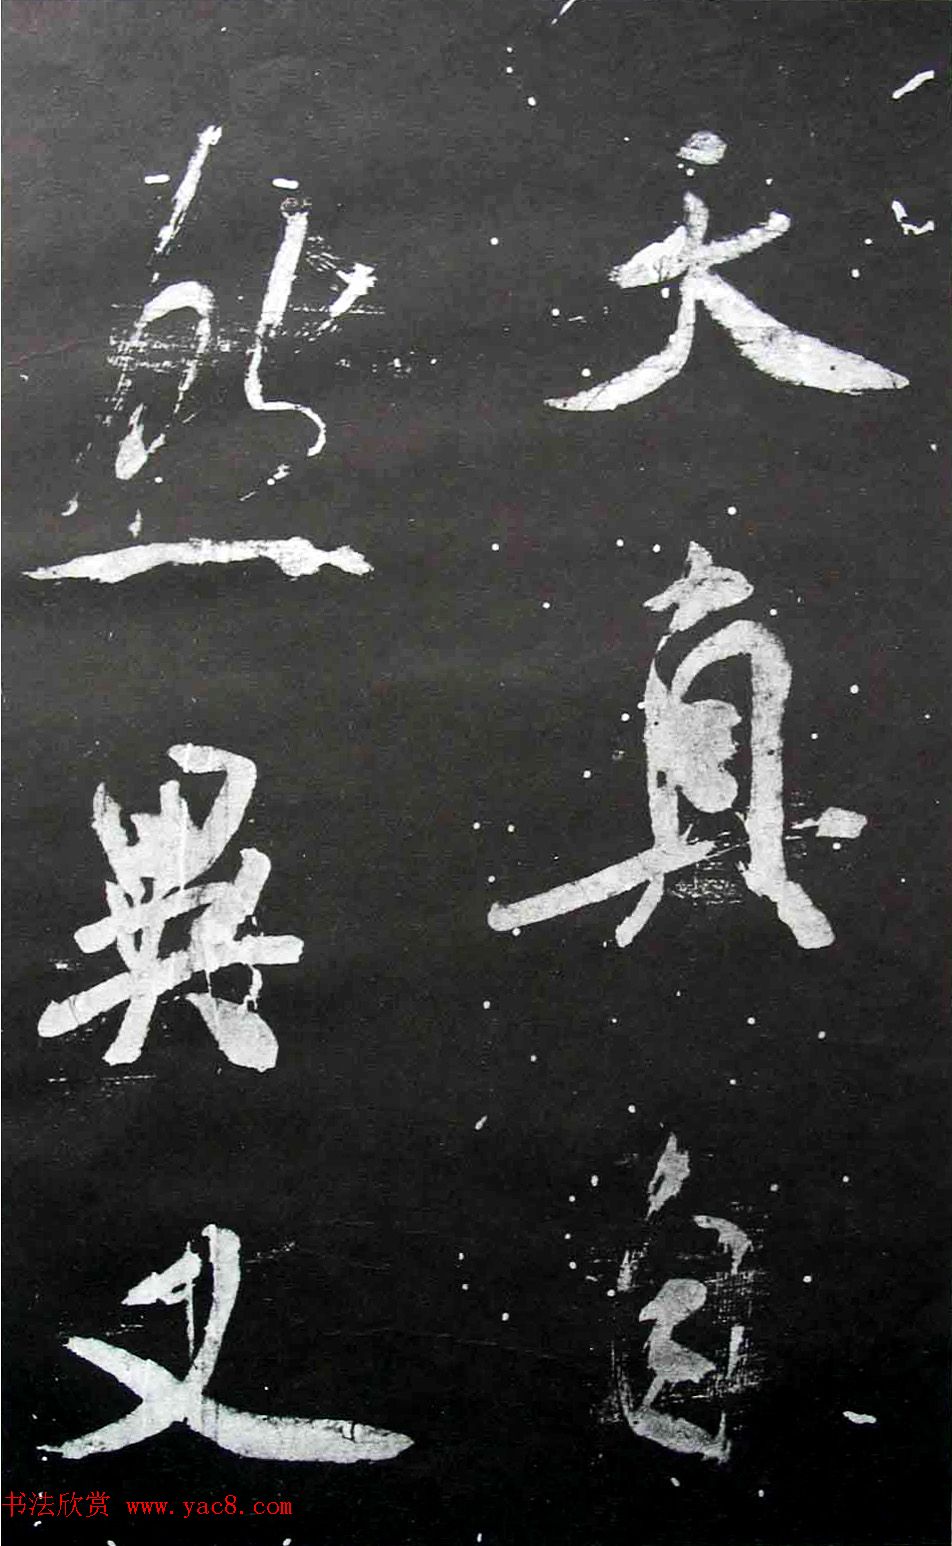 天真自
然異又
书法欣赏 www.yac8.com